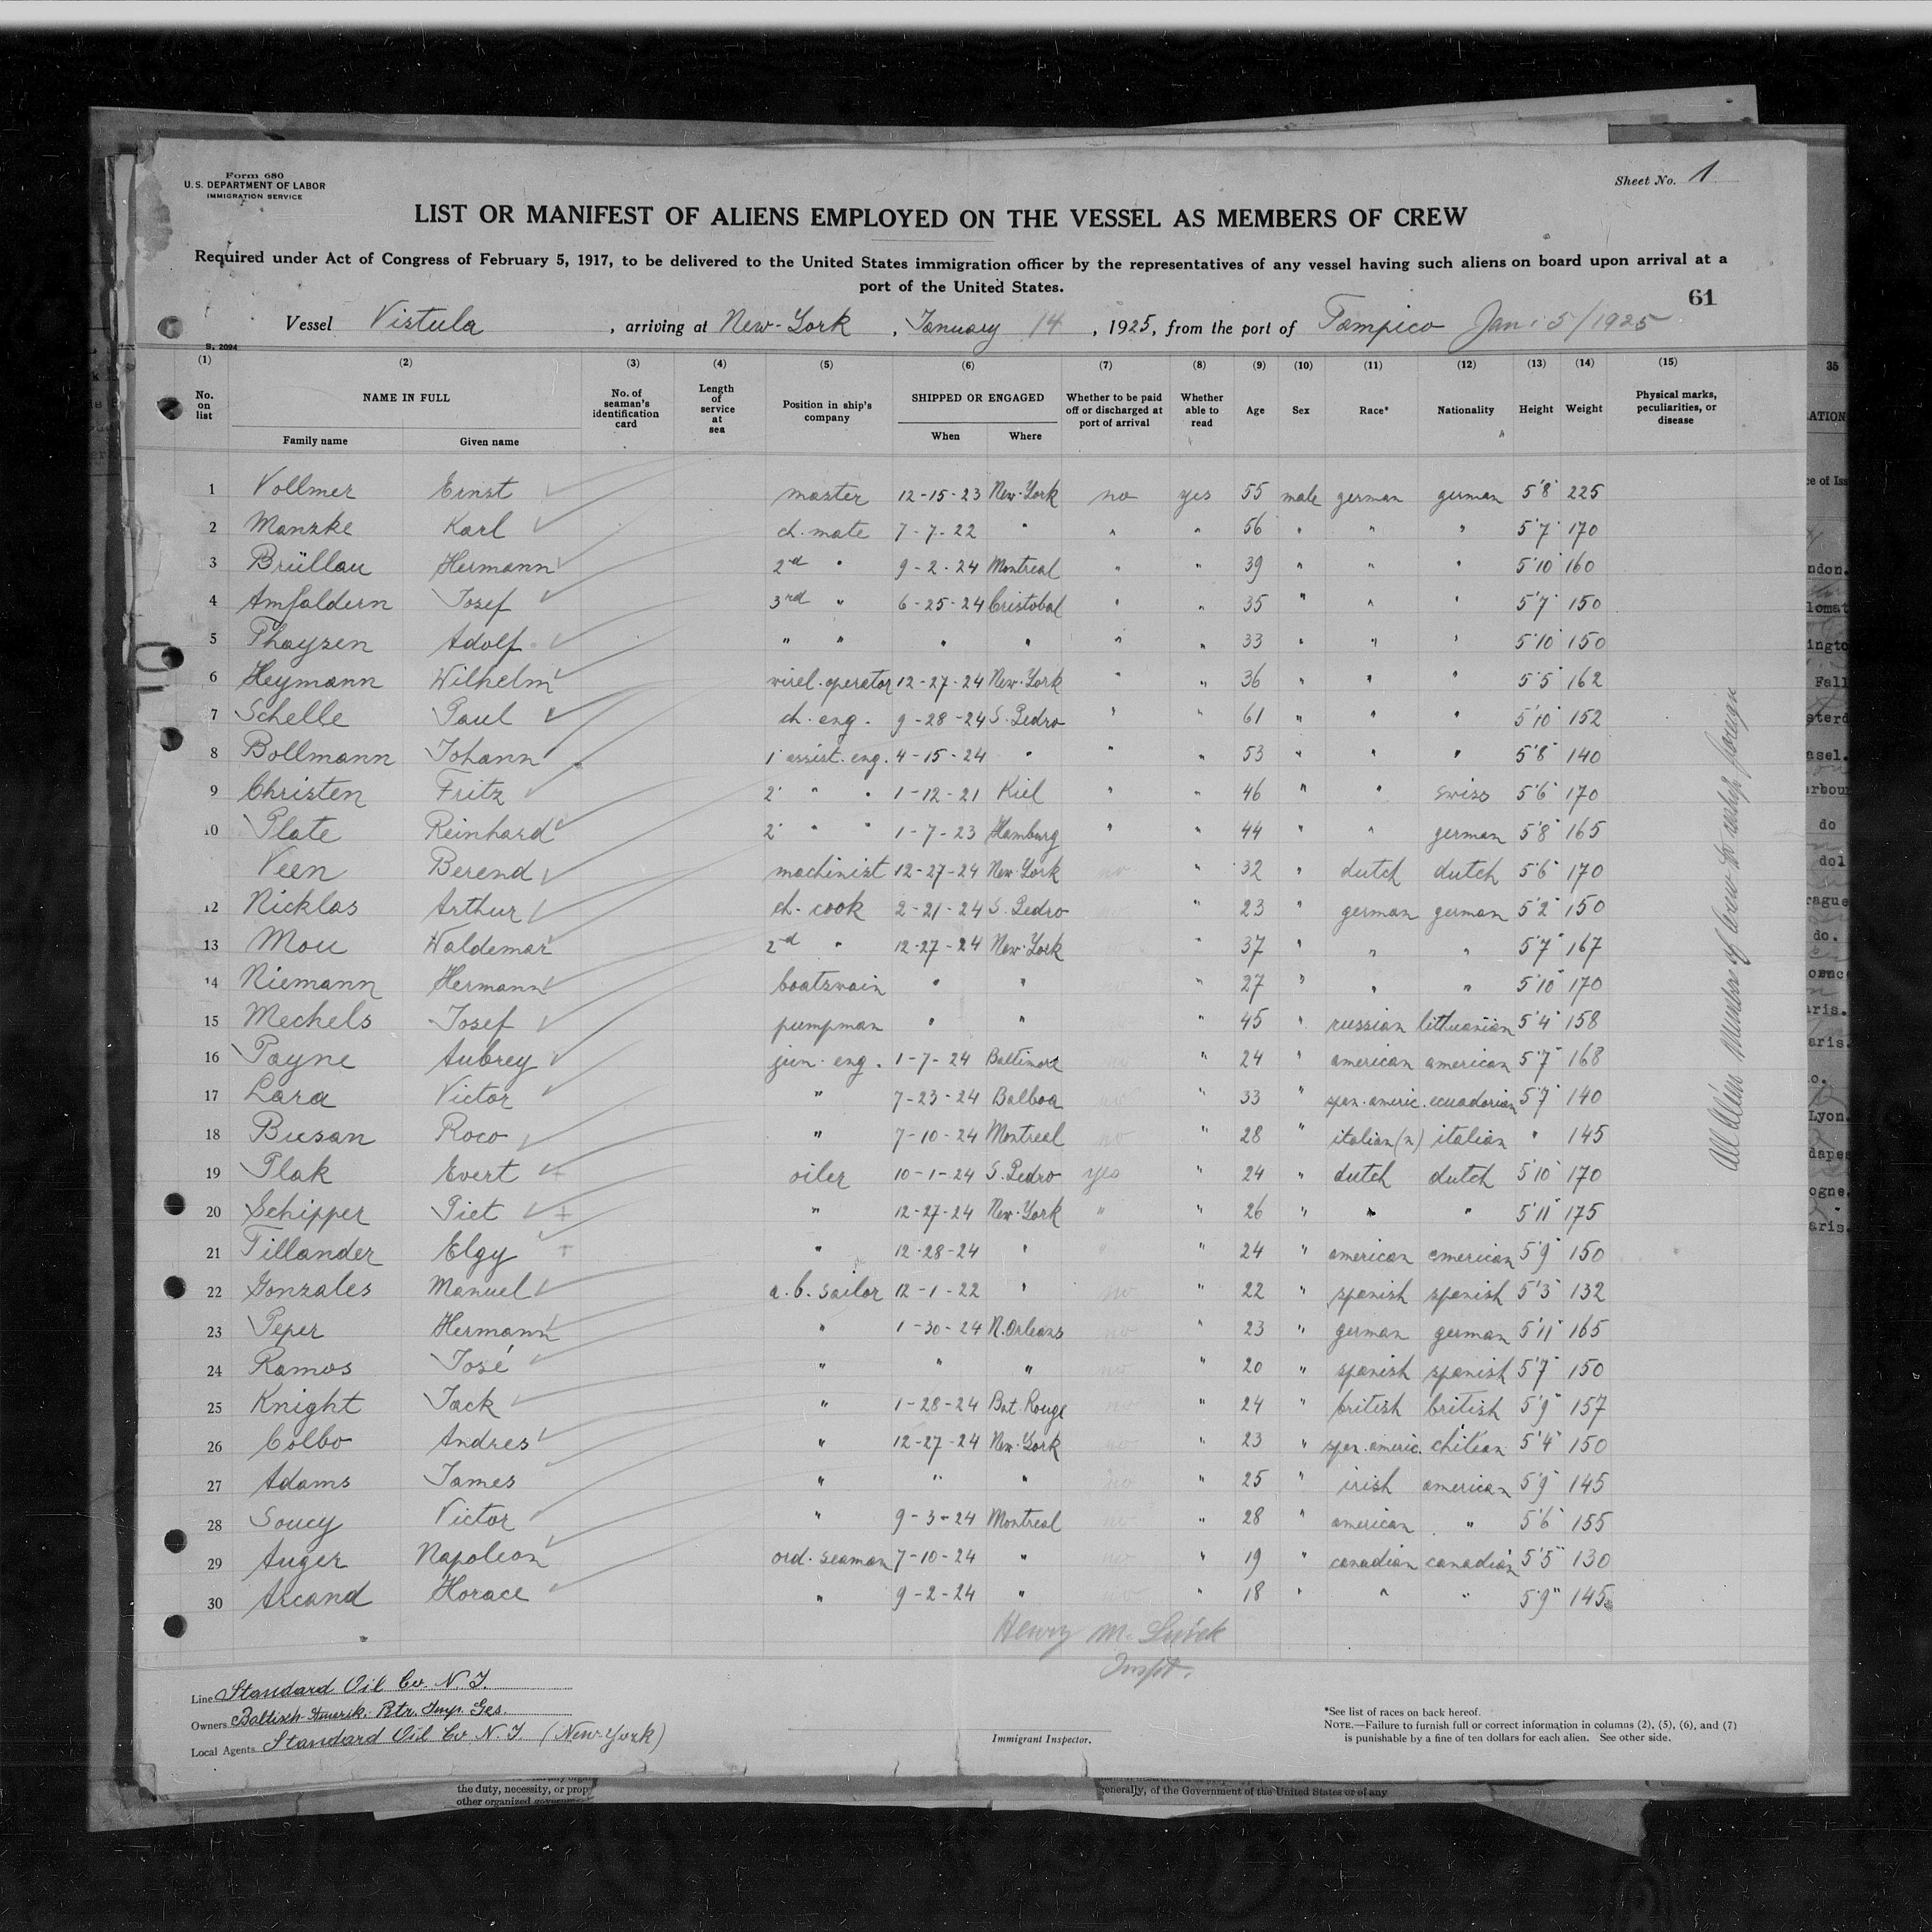 Form 680
U. S. DEPARTMENT OF LABOR
IMMIGRATION SERVICE
Sheet No. 1
LIST OR MANIFEST OF ALIENS EMPLOYED ON THE VESSEL AS MEMBERS OF CREW
Required under Act of Congress of February 5, 1917, to be delivered to the United States immigration officer by the representatives of any vessel having such aliens on board upon arrival at a
port of the United States.
61
Vessel Vistula, arriving at New-York, January 14, 1925, from the port of Tampico Jan. 5/1925
S. 2094
(1) (2) (3) (4) (5) (6) (7) (8) (9) (10) (11) (12) (13) (14) (15)
No. on list NAME IN FULL No. of seaman's identification card Length of service at sea Position in ship's company SHIPPED OR ENGAGED Whether to be paid off or discharged at port of arrival Whether able to read Age Sex Race* Nationality Height Weight Physical marks, peculiarities, or disease
Family name Given name When Where
1 Vollmer Ernst master 12-15-23 New-York no yes 55 male german german 5'8" 225
2 Manzke Karl ch. mate 7-7-22 " " " 56 " " " 5'7" 170
3 Brüllau Hermann 2nd " 9-2-24 Montreal " " 39 " " " 5'10" 160
4 Amfaldern Josef 3rd " 6-25-24 Cristobal " " 35 " " " 5'7" 150
5 Thaysen Adolf " " " " " " 33 " " " 5'10" 150
6 Heymann Wilhelm wirel. operator 12-27-24 New-York " " 36 " " " 5'5" 162
7 Schelle Paul ch. eng. 9-28-24 S. Pedro " " 61 " " " 5'10" 152
8 Bollmann Johann 1' assist. eng. 4-15-24 " " " 53 " " " 5'8" 140
9 Christen Fritz 2' " " 1-12-21 Kiel " " 46 " " swiss 5'6" 170
10 Plate Reinhard 2' " " 1-7-23 Hamburg " " 44 " " german 5'8" 165
Veen Berend machinist 12-27-24 New-York no " 32 " dutch dutch 5'6" 170
12 Nicklas Arthur ch. cook 2-21-24 S. Pedro " 23 " german german 5'2" 150
13 Mou Waldemar 2nd " 12-27-24 New-York " 37 " " " 5'7" 167
14 Niemann Hermann boatswain " " no " 27 " " " 5'10" 170
15 Mechels Josef pumpman " " " 45 " russian lithuanian 5'4" 158
16 Payne Aubrey jun. eng. 1-7-24 Baltimore " 24 " american american 5'7" 168
17 Lara Victor " 7-23-24 Balboa no " 33 " span. americ. ecuadorian 5'7" 140
18 Busan Roco " 7-10-24 Montreal no " 28 " italian (n) italian " 145
19 Plak Evert oiler 10-1-24 S. Pedro yes " 24 " dutch dutch 5'10" 170
20 Schipper Piet " 12-27-24 New-York " " 26 " " " 5'11" 175
21 Tillander Elgy " 12-28-24 " " " 24 " american american 5'9" 150
22 Gonzales Manuel a. b. sailor 12-1-22 " no " 22 " spanish spanish 5'3" 132
23 Peper Hermann " 1-30-24 N. Orleans no " 23 " german german 5'11" 165
24 Ramos José " " " no " 20 " spanish spanish 5'7" 150
25 Knight Jack " 1-28-24 Bat. Rouge no " 24 " british british 5'9" 157
26 Colbo Andres " 12-27-24 New-York no " 23 " span. americ. chilean 5'4" 150
27 Adams James " " " no " 25 " irish american 5'9" 145
28 Soucy Victor " 9-3-24 Montreal no " 28 " american " 5'6" 155
29 Auger Napoleon ord. seaman 7-10-24 " no " 19 " canadian canadian 5'5" 130
30 Arcand Horace " 9-2-24 " no " 18 " " " 5'9" 145
All Alien Members of Crew to reship foreign
Henry M.
Inspt.
Line Standard Oil Co. N. J.
Owners Baltisch-Amerik. Petr. Imp. Ges.
Local Agents Standard Oil Co. N. J. (New-York)
Immigrant Inspector.
*See list of races on back hereof.
NOTE.—Failure to furnish full or correct information in columns (2), (5), (6), and (7)
is punishable by a fine of ten dollars for each alien. See other side.
the duty, necessity, or prop
generally, of the Government of the United States or of any